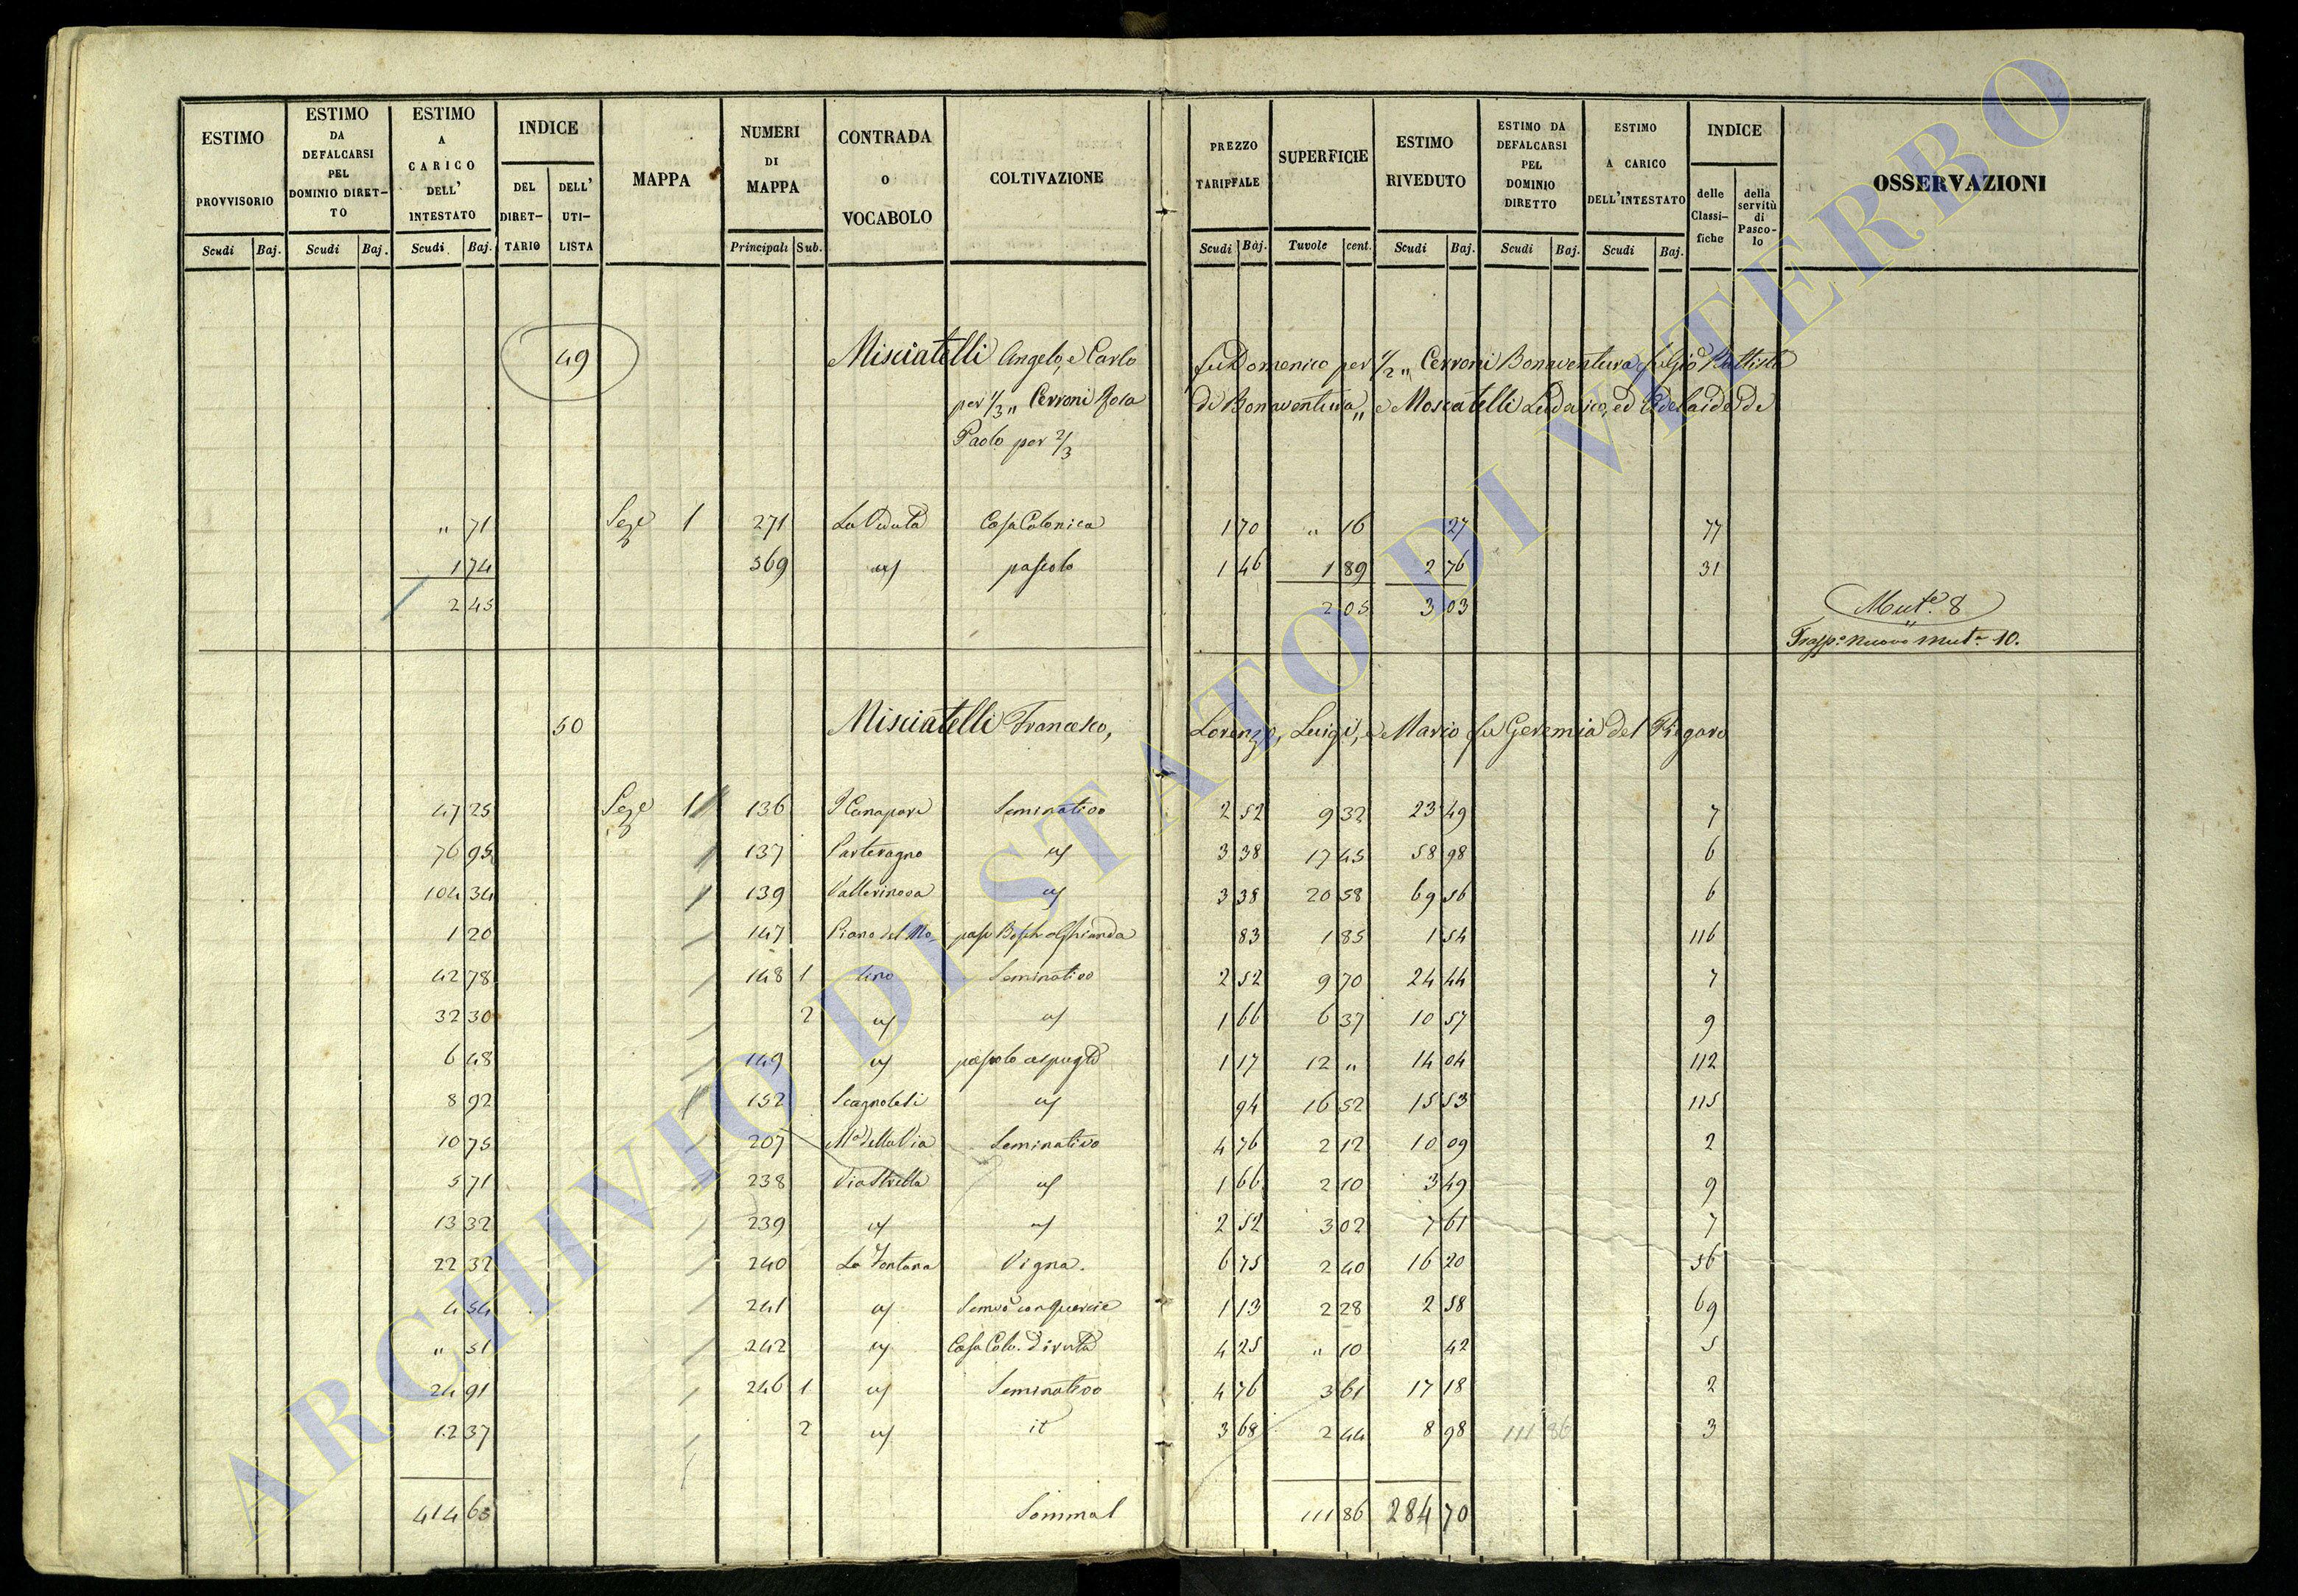 ESTIMO PROVVISORIO Scudi Baj.
ESTIMO DA DEFALCARSI PEL DOMINIO DIRET-TO Scudi Baj.
ESTIMO A CARICO DELL' INTESTATO Scudi Baj.
INDICE DEL DIRET-TARIO DELL' UTI-LISTA
MAPPA
NUMERI DI MAPPA Principali Sub.
CONTRADA O VOCABOLO
COLTIVAZIONE
PREZZO TARIFFALE Scudi Baj.
SUPERFICIE Tavole cent.
ESTIMO RIVEDUTO Scudi Baj.
ESTIMO DA DEFALCARSI PEL DOMINIO DIRETTO Scudi Baj.
ESTIMO A CARICO DELL'INTESTATO Scudi Baj.
INDICE delle Classi-fiche della servitù di Pasco-lo
OSSERVAZIONI
49 Misciatelli Angelo, e Carlo fu Domenico per 1/2 „ Cerroni Bonaventura fu Gio Battista
per 1/3 „ Cerroni Rosa di Bonaventura „ e Moscatelli Ludovico, ed Adelaide di
Paolo per 2/3
„ 71 Seze 1 271 La Veduta Casa Colonica 1 70 „ 16 27 77
1 74 369 pascolo 1 46 1 89 2 76 31
2 45 2 05 3 03 Mute. 8
Trasp. nuovo mut. 10.
50 Misciatelli Francesco, Lorenzo, Luigi, e Mario fu Geremia del Frigaro
47 25 Seze 1 136 I Canapare Seminativo 2 52 9 32 23 49 7
76 95 137 3 38 17 45 58 98 6
104 34 139 Vallerinova 3 38 20 58 69 56 6
1 20 147 Piano del Mo- pasc Bosch a Ghianda 83 1 85 1 54 116
42 78 148 1 lino Seminativo 2 52 9 70 24 44 7
32 30 2 1 66 6 37 10 57 9
6 48 149 pascolo cespugto 1 17 12 „ 14 04 112
8 92 152 94 16 52 15 53 115
10 75 207 Ma della Via Seminativo 4 76 2 12 10 09 2
5 71 238 Via Stretta 1 66 2 10 3 49 9
13 32 239 2 52 3 02 7 61 7
22 32 240 La Fontana Vigna. 6 75 2 40 16 20 56
4 54 241 Semvo con Quercie 1 13 2 28 2 58 69
„ 51 242 Casa Colo. Diruta 4 25 „ 10 42 5
24 91 246 1 Seminativo 4 76 3 61 17 18 2
12 37 2 it 3 68 2 44 8 98 111 86 3
414 65 Sommal 111 86 284 70
ARCHIVIO DI STATO DI VITERBO